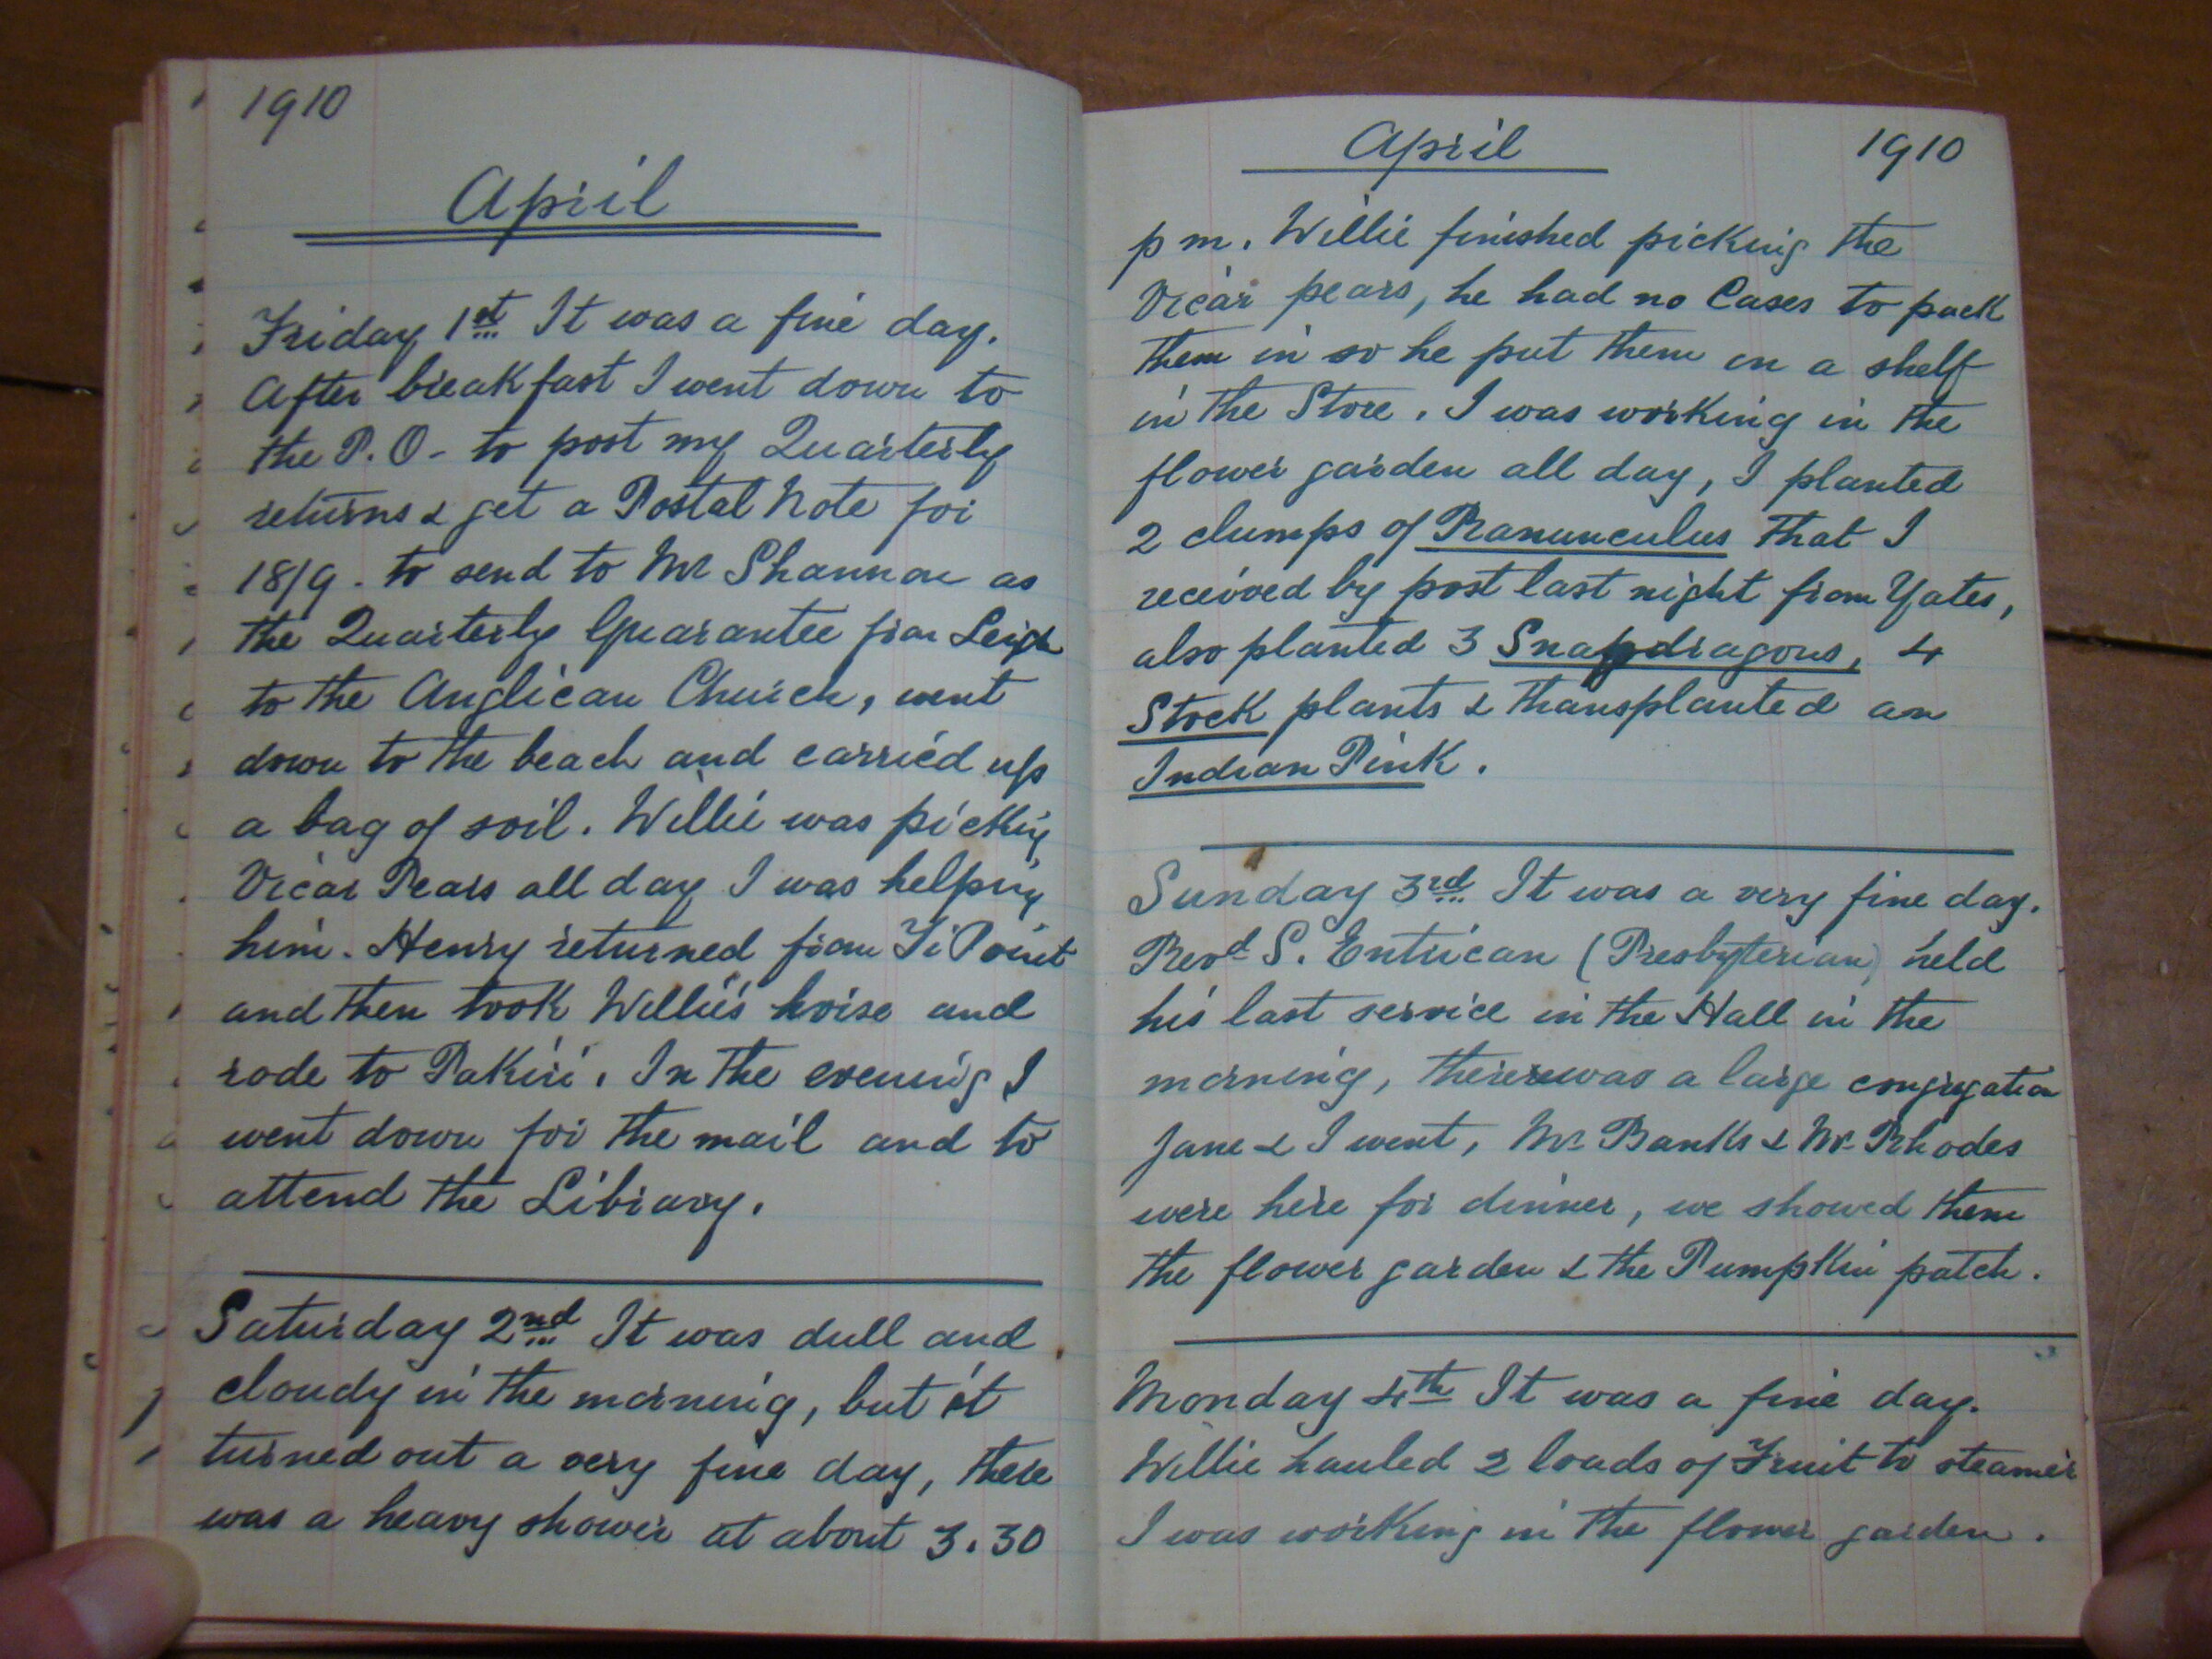 1910
April
Friday 1st It was a fine day.
After breakfast I went down to
the P.O- to post my Quarterly
returns & get a Postal Note for
18/9 - to send to Mr Shannon as
the Quarterly Guarantee from Leigh
to the Anglican Church, went
down to the beach and carried up
a bag of soil. Willie was picking
Vicar Pears all day I was helping
him. Henry returned from Ti Point
and then took Willie's horse and
rode to Pakiri. In the evening I
went down for the mail and to
attend the Library.
Saturday 2nd It was dull and
cloudy in the morning, but it
turned out a very fine day, there
was a heavy shower at about 3.30
April 1910
pm. Willie finished picking the
Vicar pears, he had no Cases to pack
them in so he put them on a shelf
in the Store. I was working in the
flower garden all day, I planted
2 clumps of Ranunculus that I
received by post last night from Yates,
also planted 3 Snapdragons, 4
Stock plants & thansplanted an
Indian Pink.
Sunday 3rd It was a very fine day.
Revd S. Entrican (Presbyterian) held
his last service in the Hall in the
morning, there was a large congregation
Jane & I went, Mr Banks & Mr Rhodes
were here for dinner, we showed them
the flower garden & the Pumpkin patch.
Monday 4th It was a fine day.
Willie hauled 2 loads of Fruit to steamer
I was working in the flower garden.